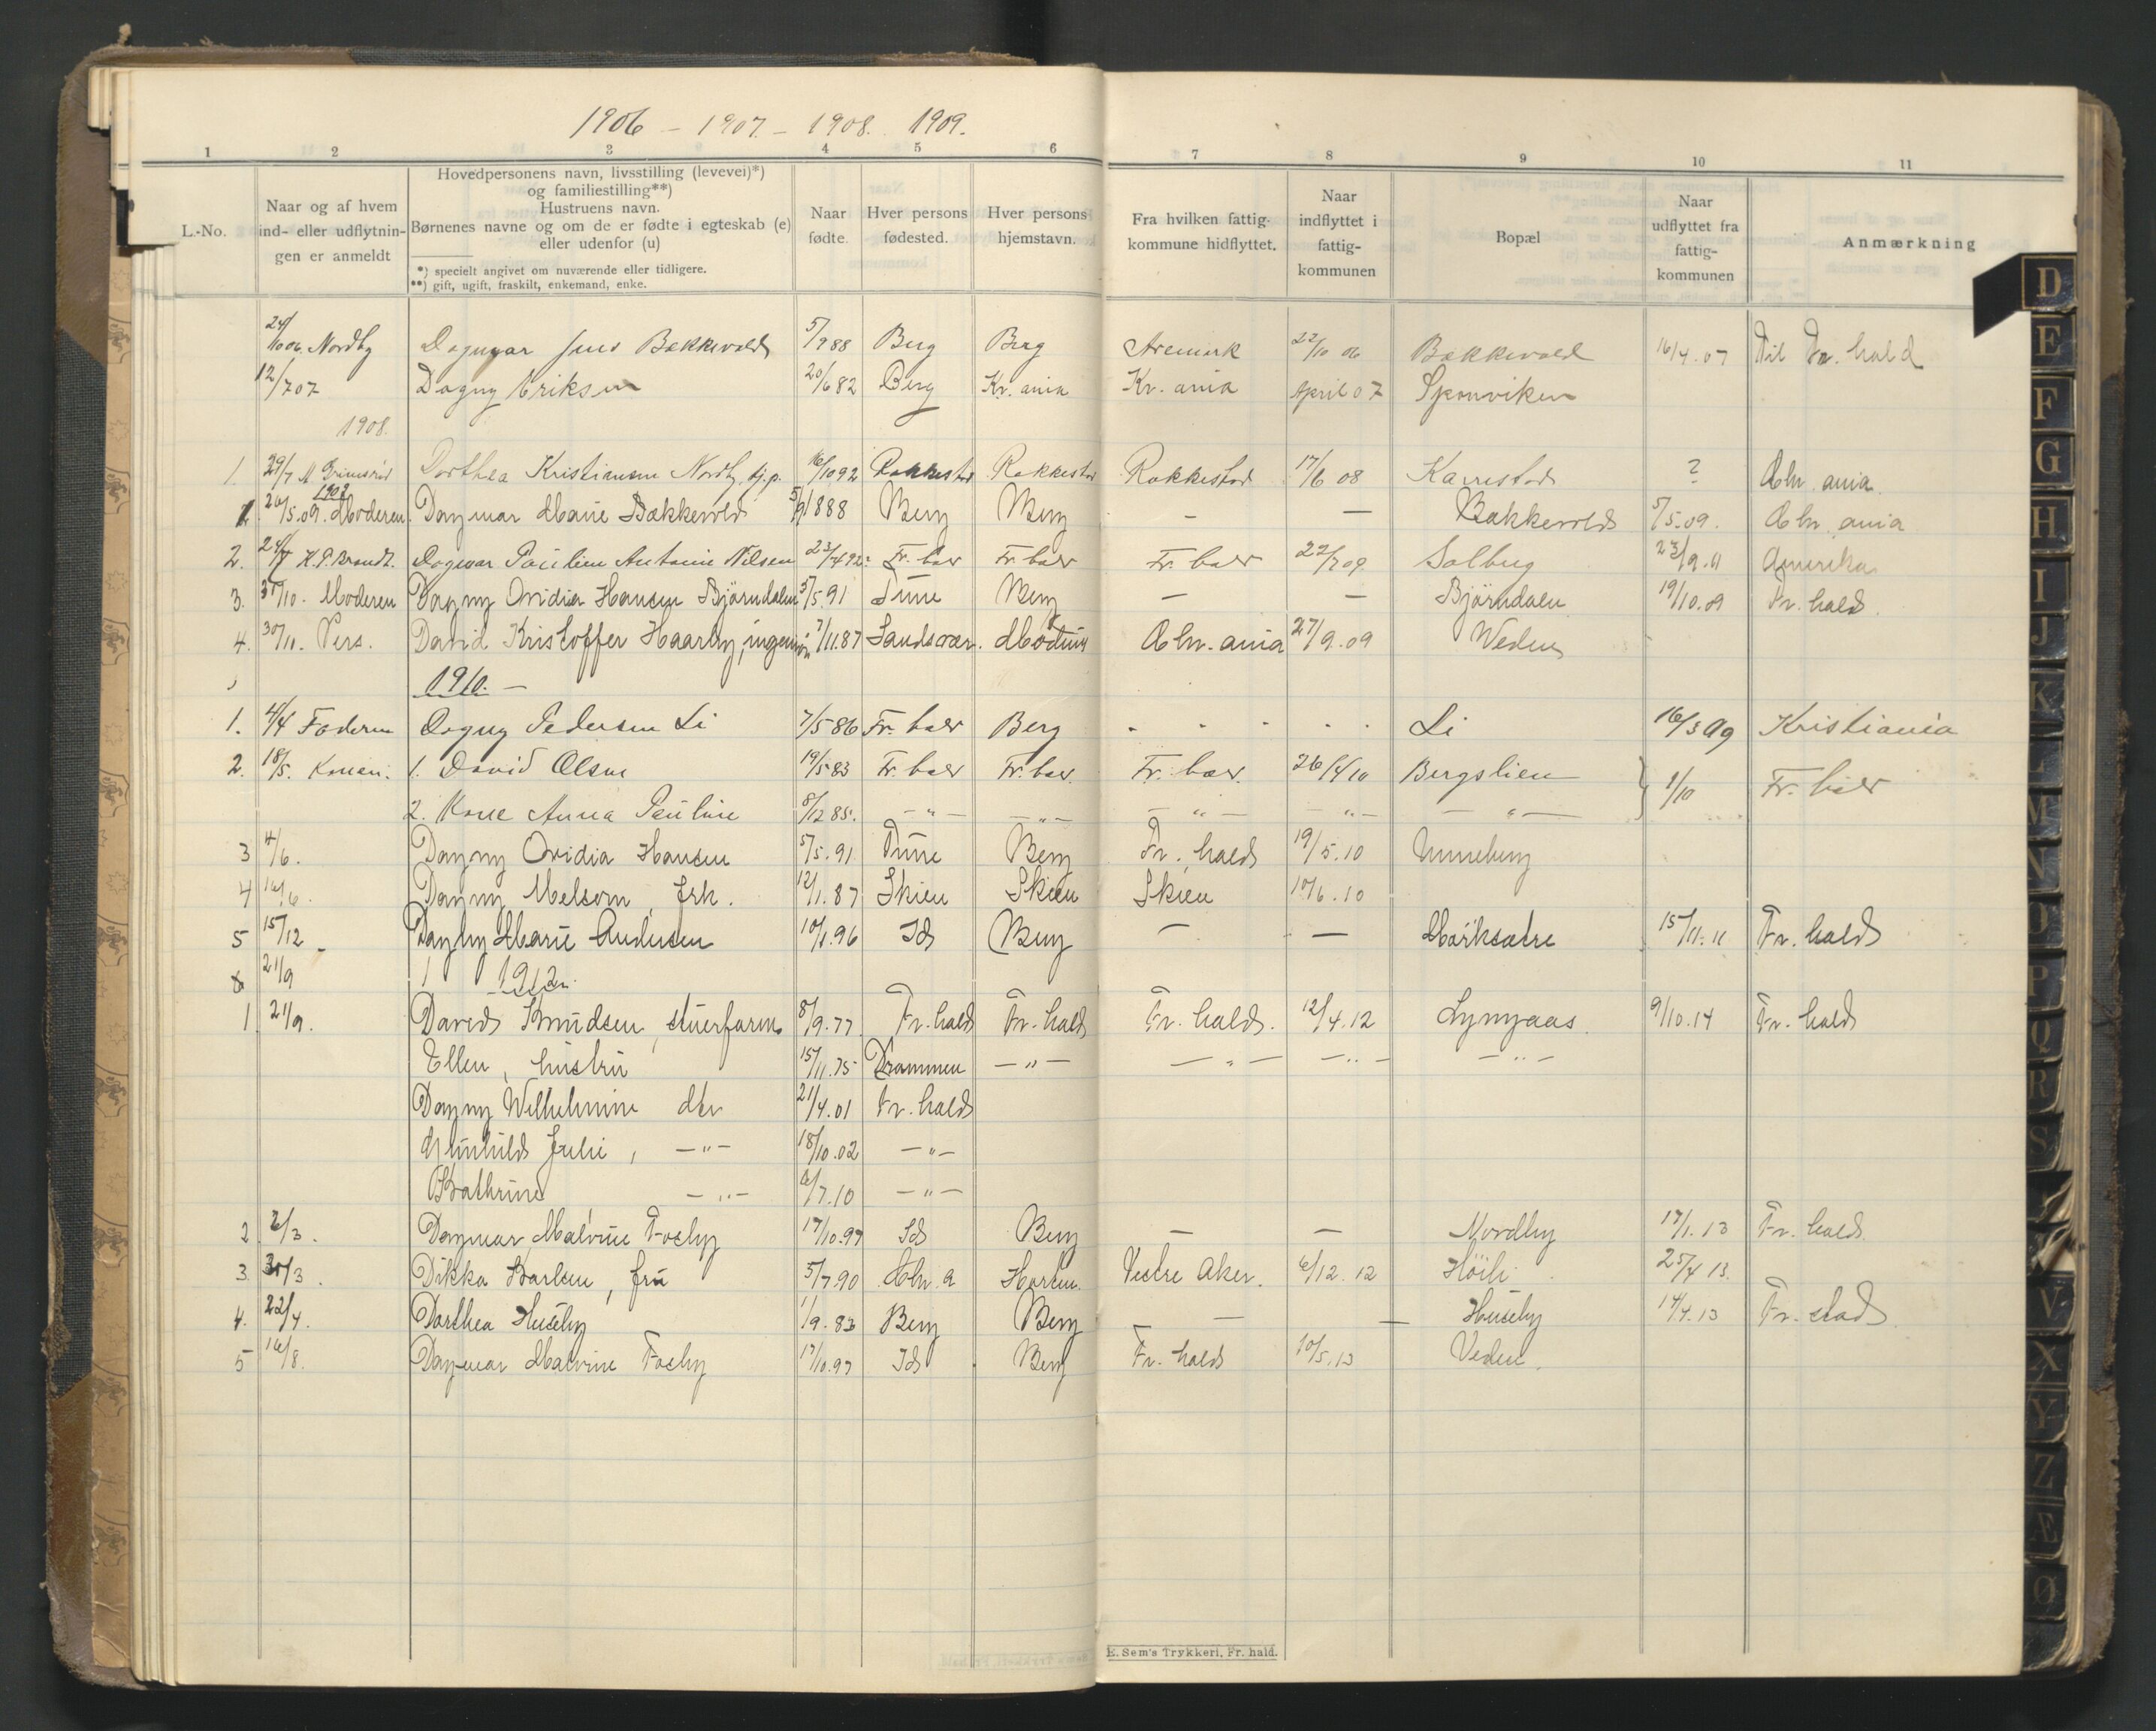 1906 - 1907 - 1908. 1909.
1 2 3 4 5 6 7 8 9 10 11
L.-No.
Naar og af hvem ind- eller udflytningen er anmeldt
Hovedpersonens navn, livsstilling (levevei)*)
og familiestilling**)
Hustruens navn.
Børnenes navne og om de er fødte i egteskab (e)
eller udenfor (u)
*) specielt angivet om nuværende eller tidligere.
**) gift, ugift, fraskilt, enkemand, enke.
Naar fødte.
Hver persons fødested.
Hver persons hjemstavn.
Fra hvilken fattigkommune hidflyttet.
Naar indflyttet i fattigkommunen
Bopæl
Naar udflyttet fra fattigkommunen
Anmærkning
24/10 06 Nordby Dagmar Bækkevold 5/9 88 Berg Berg Aremark 22/10 06 Bækkevold 16/4 07 Til Fr. hald
12/7 07 Dagny Eriksen 20/6 82 Berg Kr. ania Kr. ania April 07 Sponviken
1908.
1. 29/7 M Grimsrød Dorthea Kristiansen Nordby, tj.p. 16/10 92 Rakkestad Rakkestad Rakkestad 17/6 08 Karrestad ? Chr. ania.
1909
1. 20/5.09. Moderen. Dagmar Marie Bækkevold 5/9 1888 Berg Berg — — Bækkevold 5/5.09. Chr. ania
2. K. P. Brandt. Dagmar Pauline Antonie Nilsen 23/4 92 Fr. hald Fr. hald Fr. hald 22/7 09 Solberg 23/9.11 Amerika
3. 31/10. Moderen Dagny Ovidia Hansen Bjørndalen 5/5.91 Tune Berg — — Bjørndalen 19/10.09 Fr. hald.
4. 30/11. Pers. David Kristoffer Haarby, ingeniør 7/11.87 Sandsvær. Modum Chr. ania 27/9.09 Weden
1910. —
1. 4/4 Faderen Dagny Pedersen Li 7/5 86 Fr. hald Berg Li 16/3 09 Kristiania
2. 18/5. Konen. 1. David Olsen 19/5 83 Fr. hald Fr. hald. Fr. hald. 26/4 10 Bergslien } 1/10 Fr. hald
2. Kone Anna Pauline 8/12 85. — " — — " — — " — — " — — " —
3 4/6. Dagny Ovidia Hansen 5/5.91 Tune Berg Fr. hald 19/5.10 Unneberg
4 16/6. Dagny Melsom, frk. 12/1.87 Skien Skien Skien 10/6.10
5 15/12 Dagny Marie Andersen 10/1.96 Id Berg — — Mørksætre 15/11.11 Fr. hald
21/9 1912.
1 21/9. David Knudsen, stuerform. 8/9.77 Fr. hald Fr. hald Fr. hald. 12/4.12 Lyngaas. 9/10.14 Fr. hald
Ellen, hustru 15/11.75 Drammen — " — — " — — " — — " —
Dagny Wilhelmine dtr 21/4.01 Fr. hald
Gunhild Julie, — " — 18/10.02 — " —
Kathrine — " — 6/7.10 — " —
2 6/3. Dagmar Malvine Fosby 17/10.97 Id Berg — — Nordby 17/1.13 Fr. hald.
3. 31/3. Dikka Karlsen, fru 5/7.90 Chr. a Horten. Vestre Aker. 6/12.12 Höili 25/4 13.
4. 22/4. Dorthea Huseby 1/9.83 Berg Berg — — Huseby 14/4.13 Fr. stad
5 16/8. Dagmar Malvine Fosby 17/10.97 Id Berg Fr. hald 10/5.13 Veden.
E. Sem's Trykkeri, Fr. hald.
D
E
F
G
H
I
J
K
L
M
N
O
P
Q
R
S
V
X
Y
Z
Æ
Ø